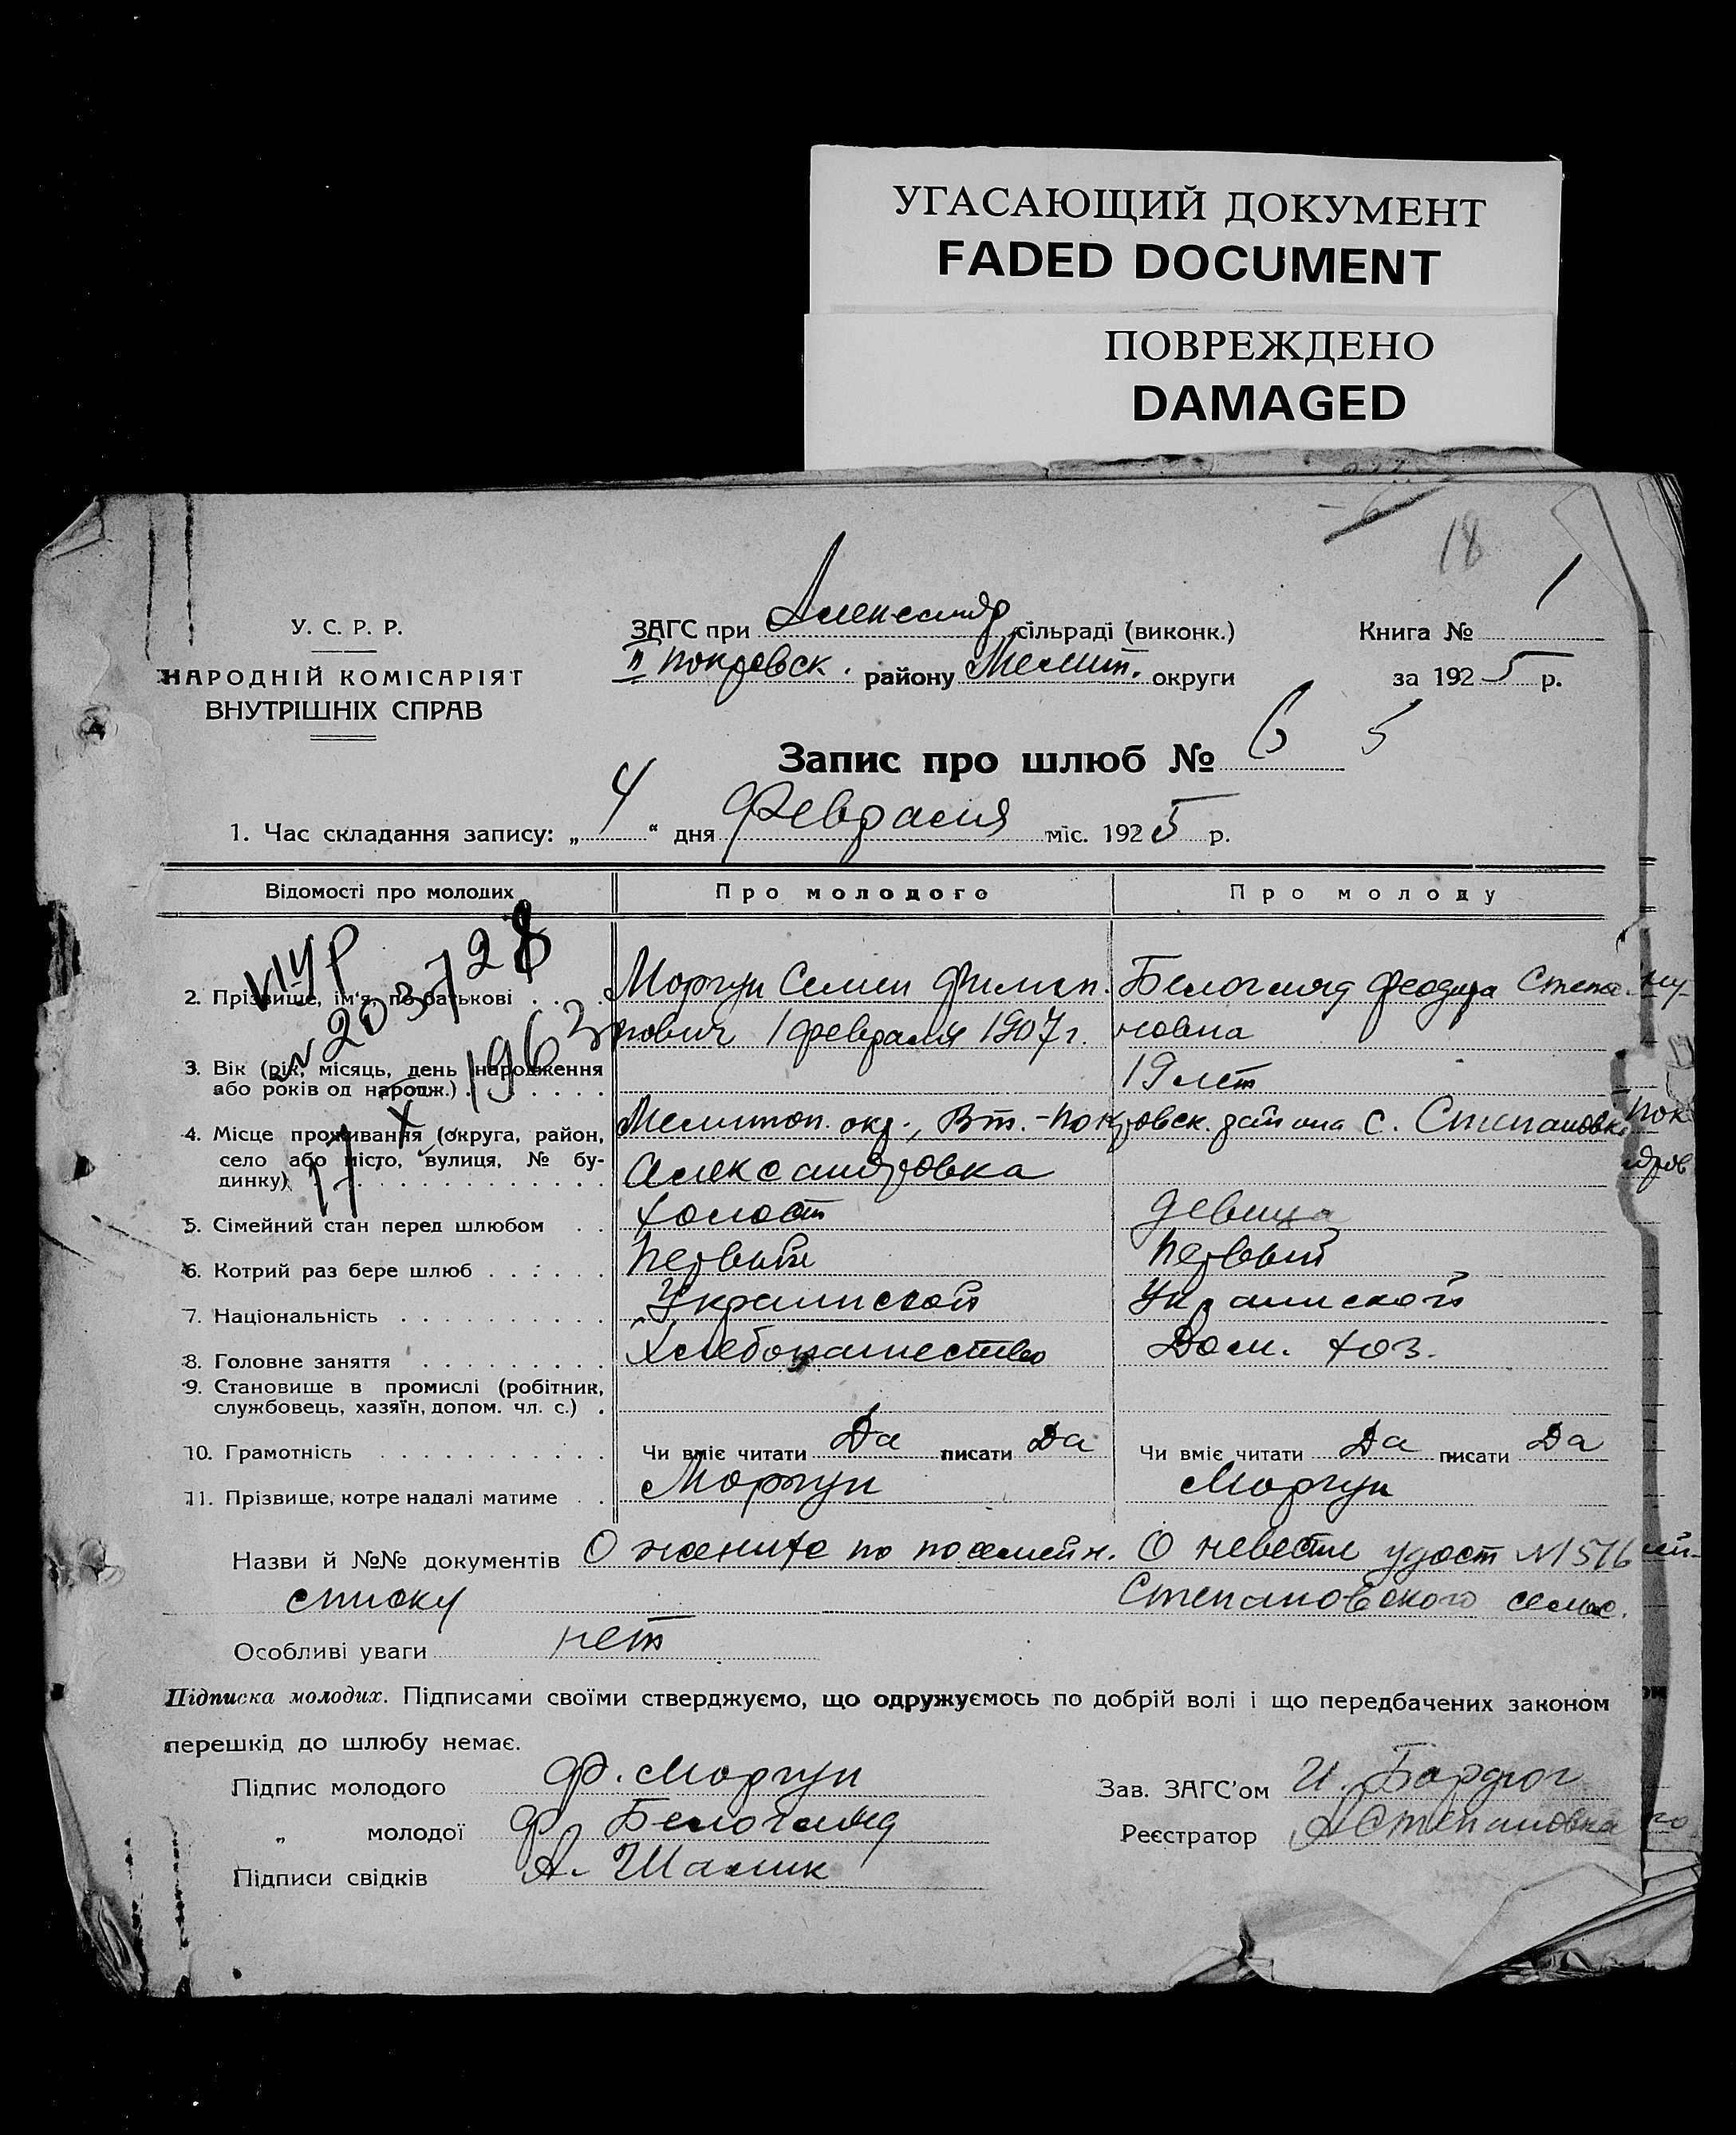 УГАСАЮЩИЙ ДОКУМЕНТ
FADED DOCUMENT
ПОВРЕЖДЕНО
DAMAGED
18
У. С. Р. Р.
НАРОДНІЙ КОМІСАРІЯТ
ВНУТРІШНІХ СПРАВ
ЗАГС при Александр сільраді (виконк.)
II Покровск. району Мелит. округи
Книга № 1
за 1925 р.
Запис про шлюб № 6 5
1. Час складання запису: „ 4 “ дня Февраля міс. 1925 р.
Відомості про молодих Про молодого Про молоду
№ 203728
1963
2. Прізвище, ім'я, по батькові . . . . Моргун Семен Филип. Белогляд Феодора Степа
пович 1 февраля 1907 г. новна
3. Вік (рік, місяць, день народження
або років од народж.) . . . . . . 19 лет
4. Місце проживання (округа, район, Мелитоп. окр., Вт.-Покровск. района с. Степановка
село або місто, вулиця, № бу-
динку) . . . . . . . . . . . . . Александровка
5. Сімейний стан перед шлюбом . . холост девица
6. Котрий раз бере шлюб . . . . . . Первый Первый
7. Національність . . . . . . . . . . Украинской Украинской
8. Головне заняття . . . . . . . . . Хлебопашество Дом. хоз.
9. Становище в промислі (робітник,
службовець, хазяїн, допом. чл. с.) .
10. Грамотність . . . . . . . . . . . Чи вміє читати Да писати Да Чи вміє читати Да писати Да
11. Прізвище, котре надалі матиме . . Моргун Моргун
Назви й №№ документів О женихе по посемейн. О невесте удост № 516
списку Степановского сельс.
Особливі уваги нет
Підписка молодих. Підписами своїми стверджуємо, що одружуємось по добрій волі і що передбачених законом
перешкід до шлюбу немає.
Підпис молодого Ф. Моргун Зав. ЗАГС'ом И.
„ молодої Ф. Белогляд Реєстратор
Підписи свідків А. Шалик